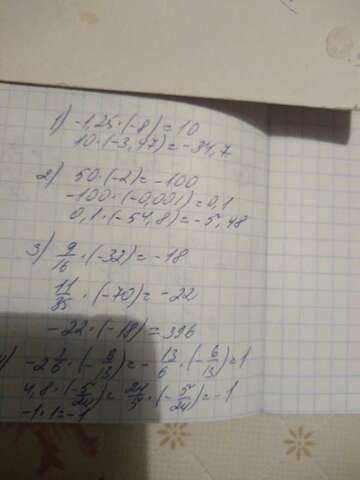 1) -1,25·(-8)=10
10·(-3,47)=-34,7
2) 50·(-2)=-100
-100·(-0,001)=0,1
0,1·(-54,8)=-5,48
3) 9/16·(-32)=-18
11/35·(-70)=-22
-22·(-18)=396
4) -2 1/6·(-6/13)=-13/6·(-6/13)=1
4,8·(-5/24)=24/5·(-5/24)=-1
-1·1=-1